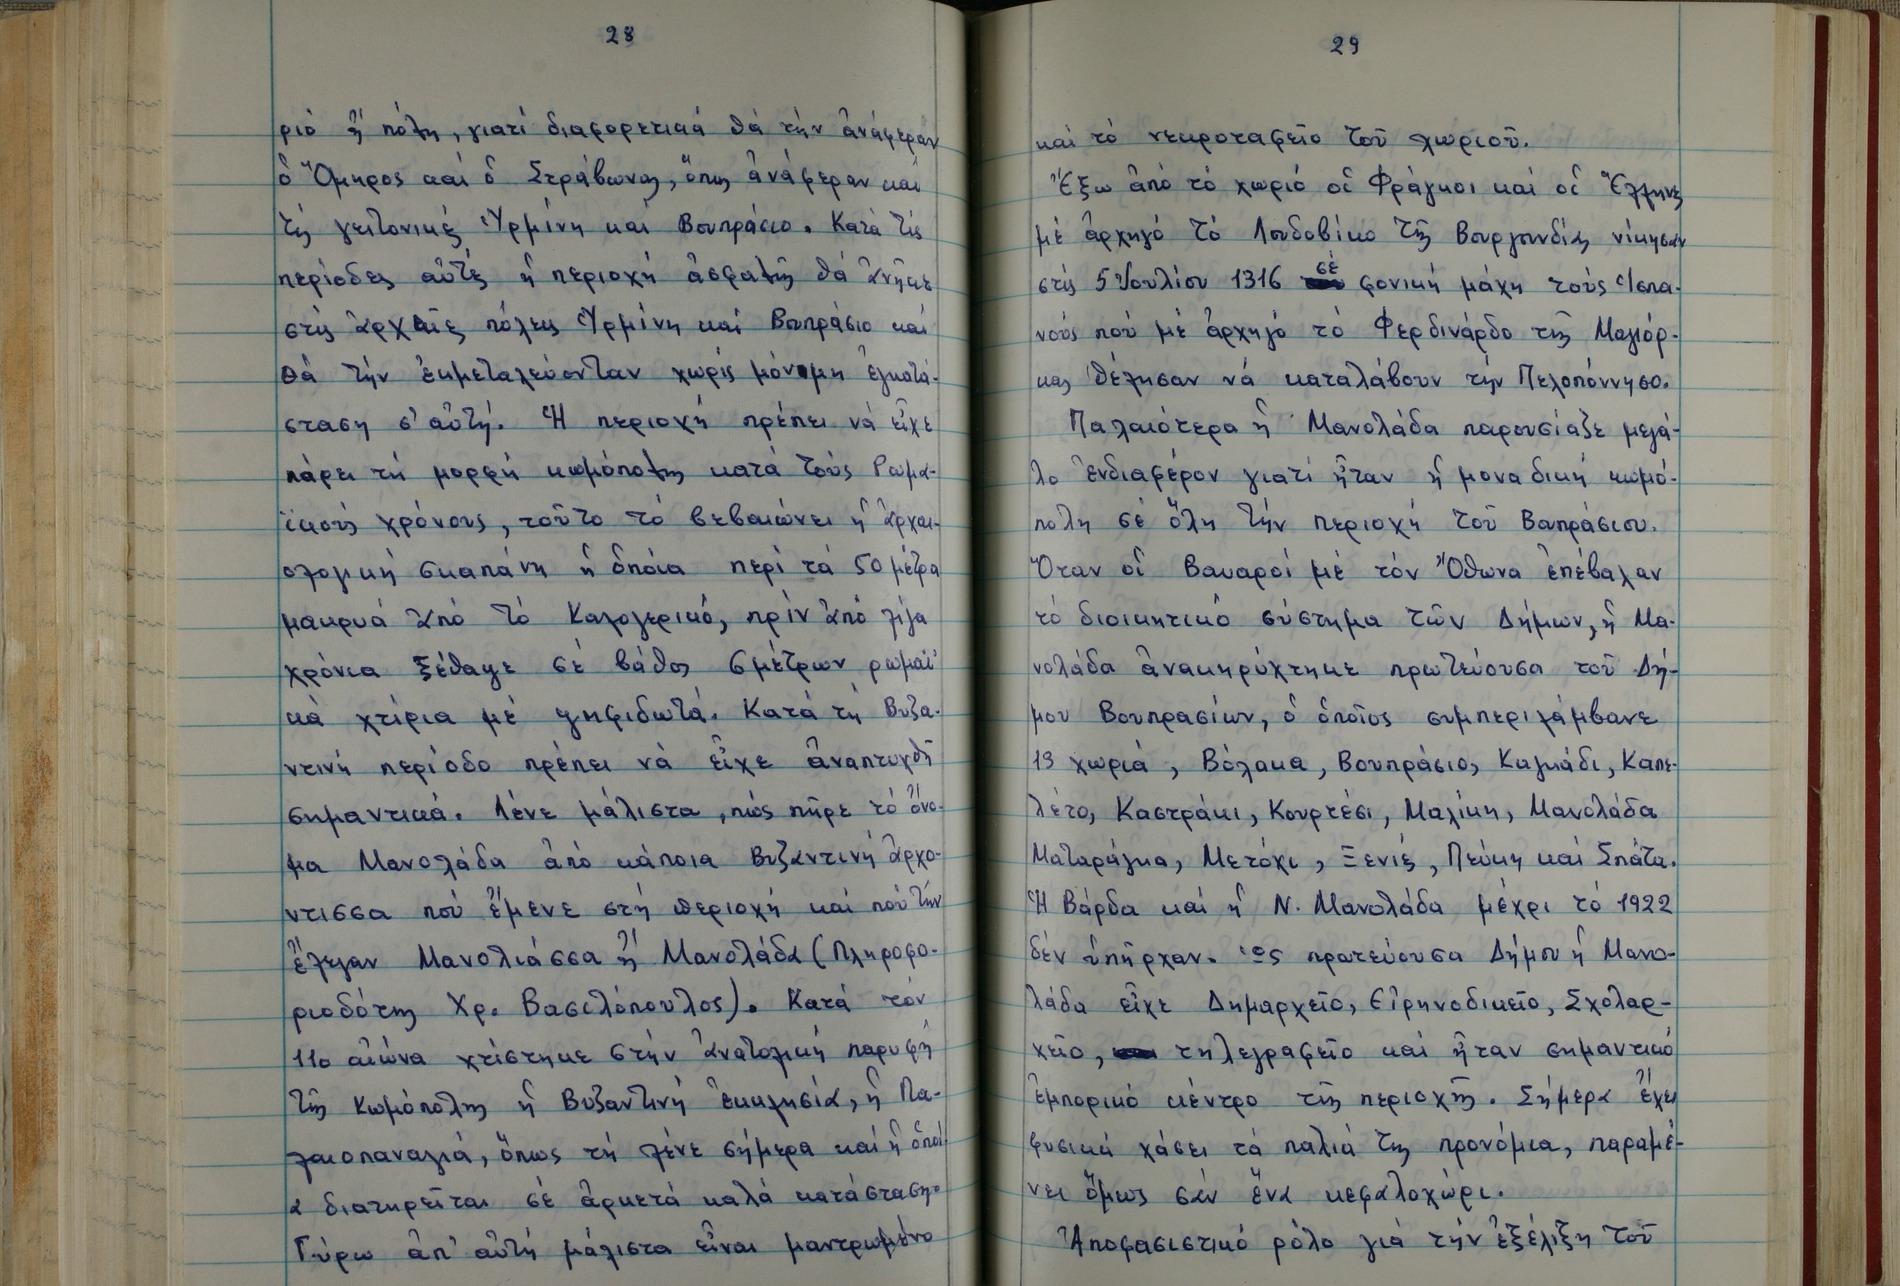 28
ριό ἤ πόλη, γιατί διαφορετικά θά τήν ἀνάφεραν
ὁ Ὅμηρος καί ὁ Στράβωνας, ὅπως ἀνάφεραν καί
τίς γειτονικές Ὑρμίνη καί Βουπράσιο. Κατά τίς
περίοδες αὐτές ἡ περιοχή ἀσφαλῶς θά ἀνῆκε
στίς ἀρχαῖες πόλεις Ὑρμίνη καί Βουπράσιο καί
θά τήν ἐκμεταλεύονταν χωρίς μόνιμη ἐγκατά-
σταση σ' αὐτή. Ἡ περιοχή πρέπει νά εἶχε
πάρει τή μορφή κωμόπολης κατά τούς Ρωμα-
ϊκούς χρόνους, τοῦτο τό βεβαιώνει ἡ ἀρχαι-
ολογική σκαπάνη ἡ ὁποία περί τά 50 μέτρα
μακρυά ἀπό τό Καλογερικό, πρίν ἀπό λίγα
χρόνια ξέθαψε σέ βάθος 5 μέτρων ρωμαϊ-
κά χτίρια μέ ψηφιδωτά. Κατά τή Βυζα-
ντινή περίοδο πρέπει νά εἶχε ἀναπτυχθῆ
σημαντικά. Λένε μάλιστα, πώς πῆρε τό ὄνο-
μα Μανολάδα ἀπό κάποια Βυζαντινή ἀρχό-
ντισσα πού ἔμενε στή περιοχή καί πού τήν
ἔλεγαν Μανολιάσσα ἤ Μανολάδα (Πληροφο-
ριοδότης Χρ. Βασιλόπουλος). Κατά τόν
11ο αἰώνα χτίστηκε στήν ἀνατολική παρυφή
τῆς Κωμόπολης ἡ Βυζαντινή ἐκκλησία, ἡ Πα-
λαιοπαναγιά, ὅπως τή λένε σήμερα καί ἡ ὁποί
α διατηρεῖται σέ ἀρκετά καλά κατάσταση.
Γύρω ἀπ' αὐτή μάλιστα εἶναι μαντρωμένο
29
καί τό νεκροταφεῖο τοῦ χωριοῦ.
Ἔξω ἀπό τό χωριό οἱ Φράγκοι καί οἱ Ἕλληνες
μέ ἀρχηγό τό Λουδοβίκο τῆς Βουργουνδίας νίκησαν
στίς 5 Ἰουλίου 1316 σέ φονική μάχη τούς Ἱσπα-
νούς πού μέ ἀρχηγό τό Φερδινάρδο τῆς Μαγιόρ-
κας θέλησαν νά καταλάβουν τήν Πελοπόννησο.
Παλαιότερα ἡ Μανολάδα παρουσίαζε μεγά-
λο ἐνδιαφέρον γιατί ἦταν ἡ μοναδική κωμό-
πολη σέ ὅλη τήν περιοχή τοῦ Βουπράσιου.
Ὅταν οἱ Βαυαροί μέ τόν Ὄθωνα ἐπέβαλαν
τό διοικητικό σύστημα τῶν Δήμων, ἡ Μα-
νολάδα ἀνακηρύχτηκε πρωτεύουσα τοῦ Δή-
μου Βουπρασίων, ὁ ὁποῖος συμπεριλάμβανε
13 χωριά, Βόλακα, Βουπράσιο, Καγκάδι, Καπε-
λέτο, Καστράκι, Κουρτέσι, Μαλίκη, Μανολάδα
Ματαράγκα, Μετόχι, Ξενιές, Πεύκη καί Σπάτα.
Ἡ Βάρδα καί ἡ Ν. Μανολάδα μέχρι τό 1922
δέν ὑπῆρχαν. Ὡς πρωτεύουσα Δήμου ἡ Μανο-
λάδα εἶχε Δημαρχεῖο, Εἰρηνοδικεῖο, Σχολαρ-
χεῖο, τηλεγραφεῖο καί ἦταν σημαντικό
ἐμπορικό κέντρο τῆς περιοχῆς. Σήμερα ἔχει
φυσικά χάσει τά παλιά της προνόμια, παραμέ-
νει ὅμως σάν ἕνα κεφαλοχώρι.
Ἀποφασιστικό ρόλο γιά τήν ἐξέλιξη τοῦ